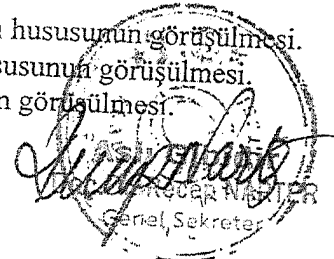 hususunun görüşülmesi.
susunun görüşülmesi.
n görüşülmesi.
NARTER
Genel Sekreter